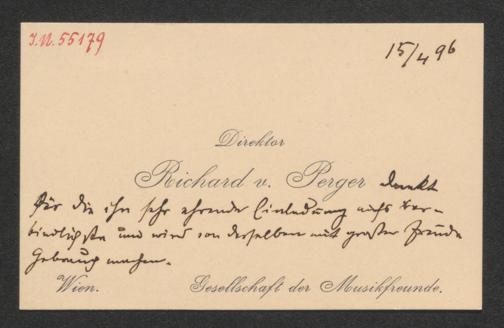 I.N. 55179
15/4 96
Direktor
Richard v. Perger dankt
für die ihn sehr ehrende Einladung aufs ver-
bindlichste und wird von derselben mit großer Freude
Gebrauch machen.
Wien. Gesellschaft der Musikfreunde.